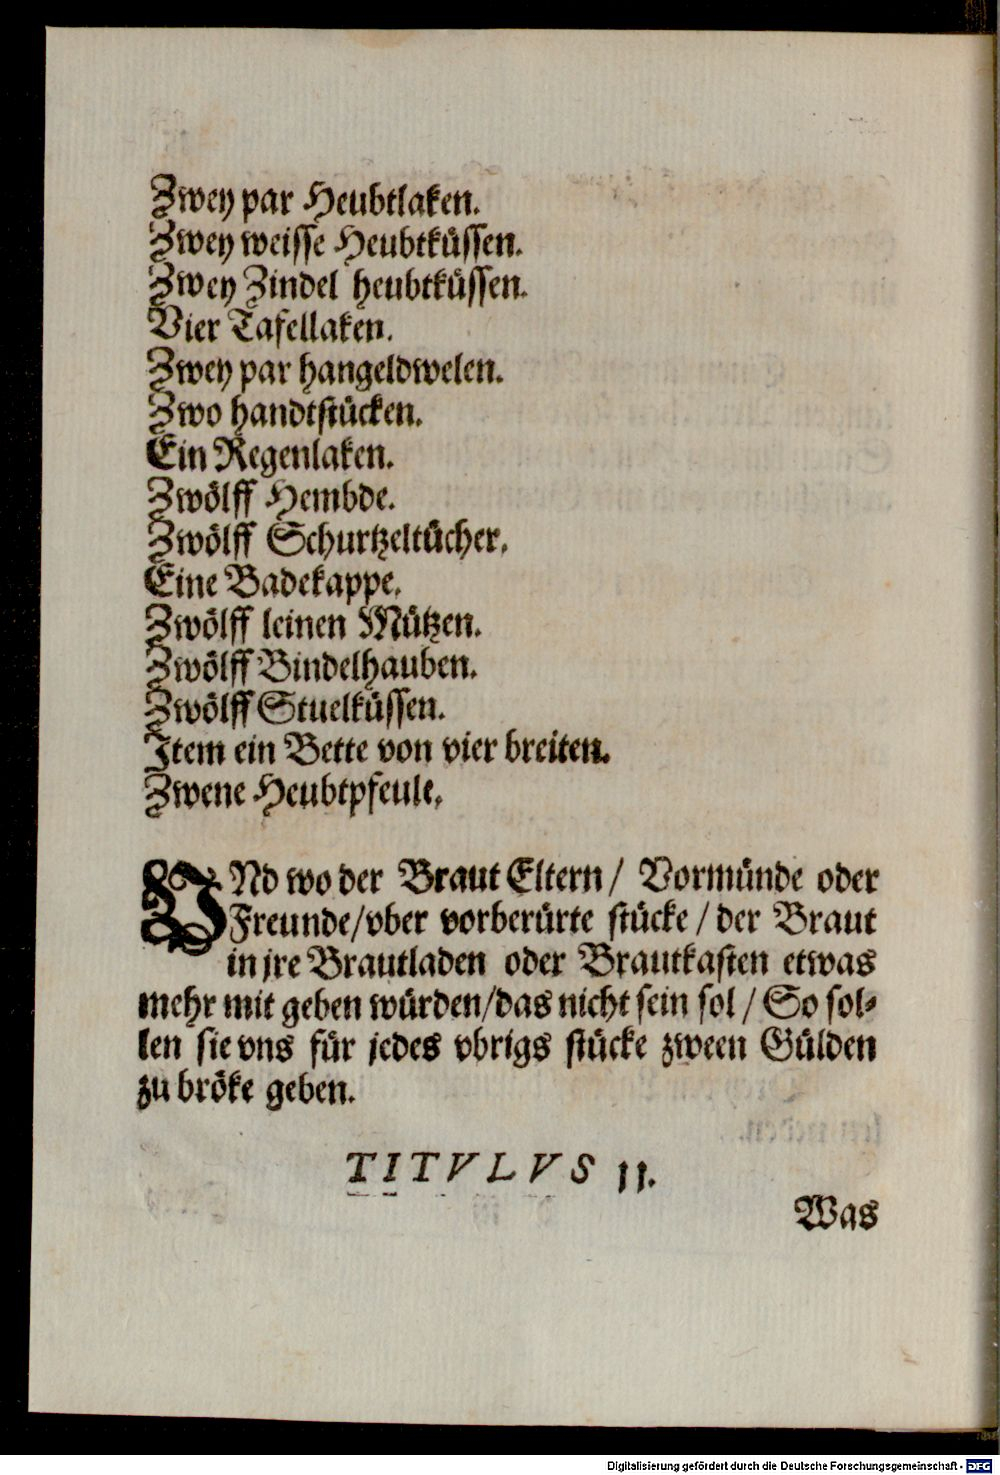 Zwey par Heubtlaken.
Zwey weisse Heubtküssen.
Zwey Zindel heubtküssen.
Vier Tafellaken.
Zwey par hangeldwelen.
Zwo handtstücken.
Ein Regenlaken.
Zwölff Hembde.
Zwölff Schurtzeltücher.
Eine Badekappe.
Zwölff leinen Mützen.
Zwölff Bindelhauben.
Zwölff Stuelküssen.
Item ein Bette von vier breiten.
Zwene Heubtpfeule.
VNd wo der Braut Eltern / Vormünde oder
Freunde/vber vorberürte stücke / der Braut
in jre Brautladen oder Brautkasten etwas
mehr mit geben würden/das nicht sein sol / So sol-
len sie vns für jedes vbrigs stücke zween Gülden
zu bröke geben.
TITVLVS II.
Was
Digitalisierung gefördert durch die Deutsche Forschungsgemeinschaft - DFG